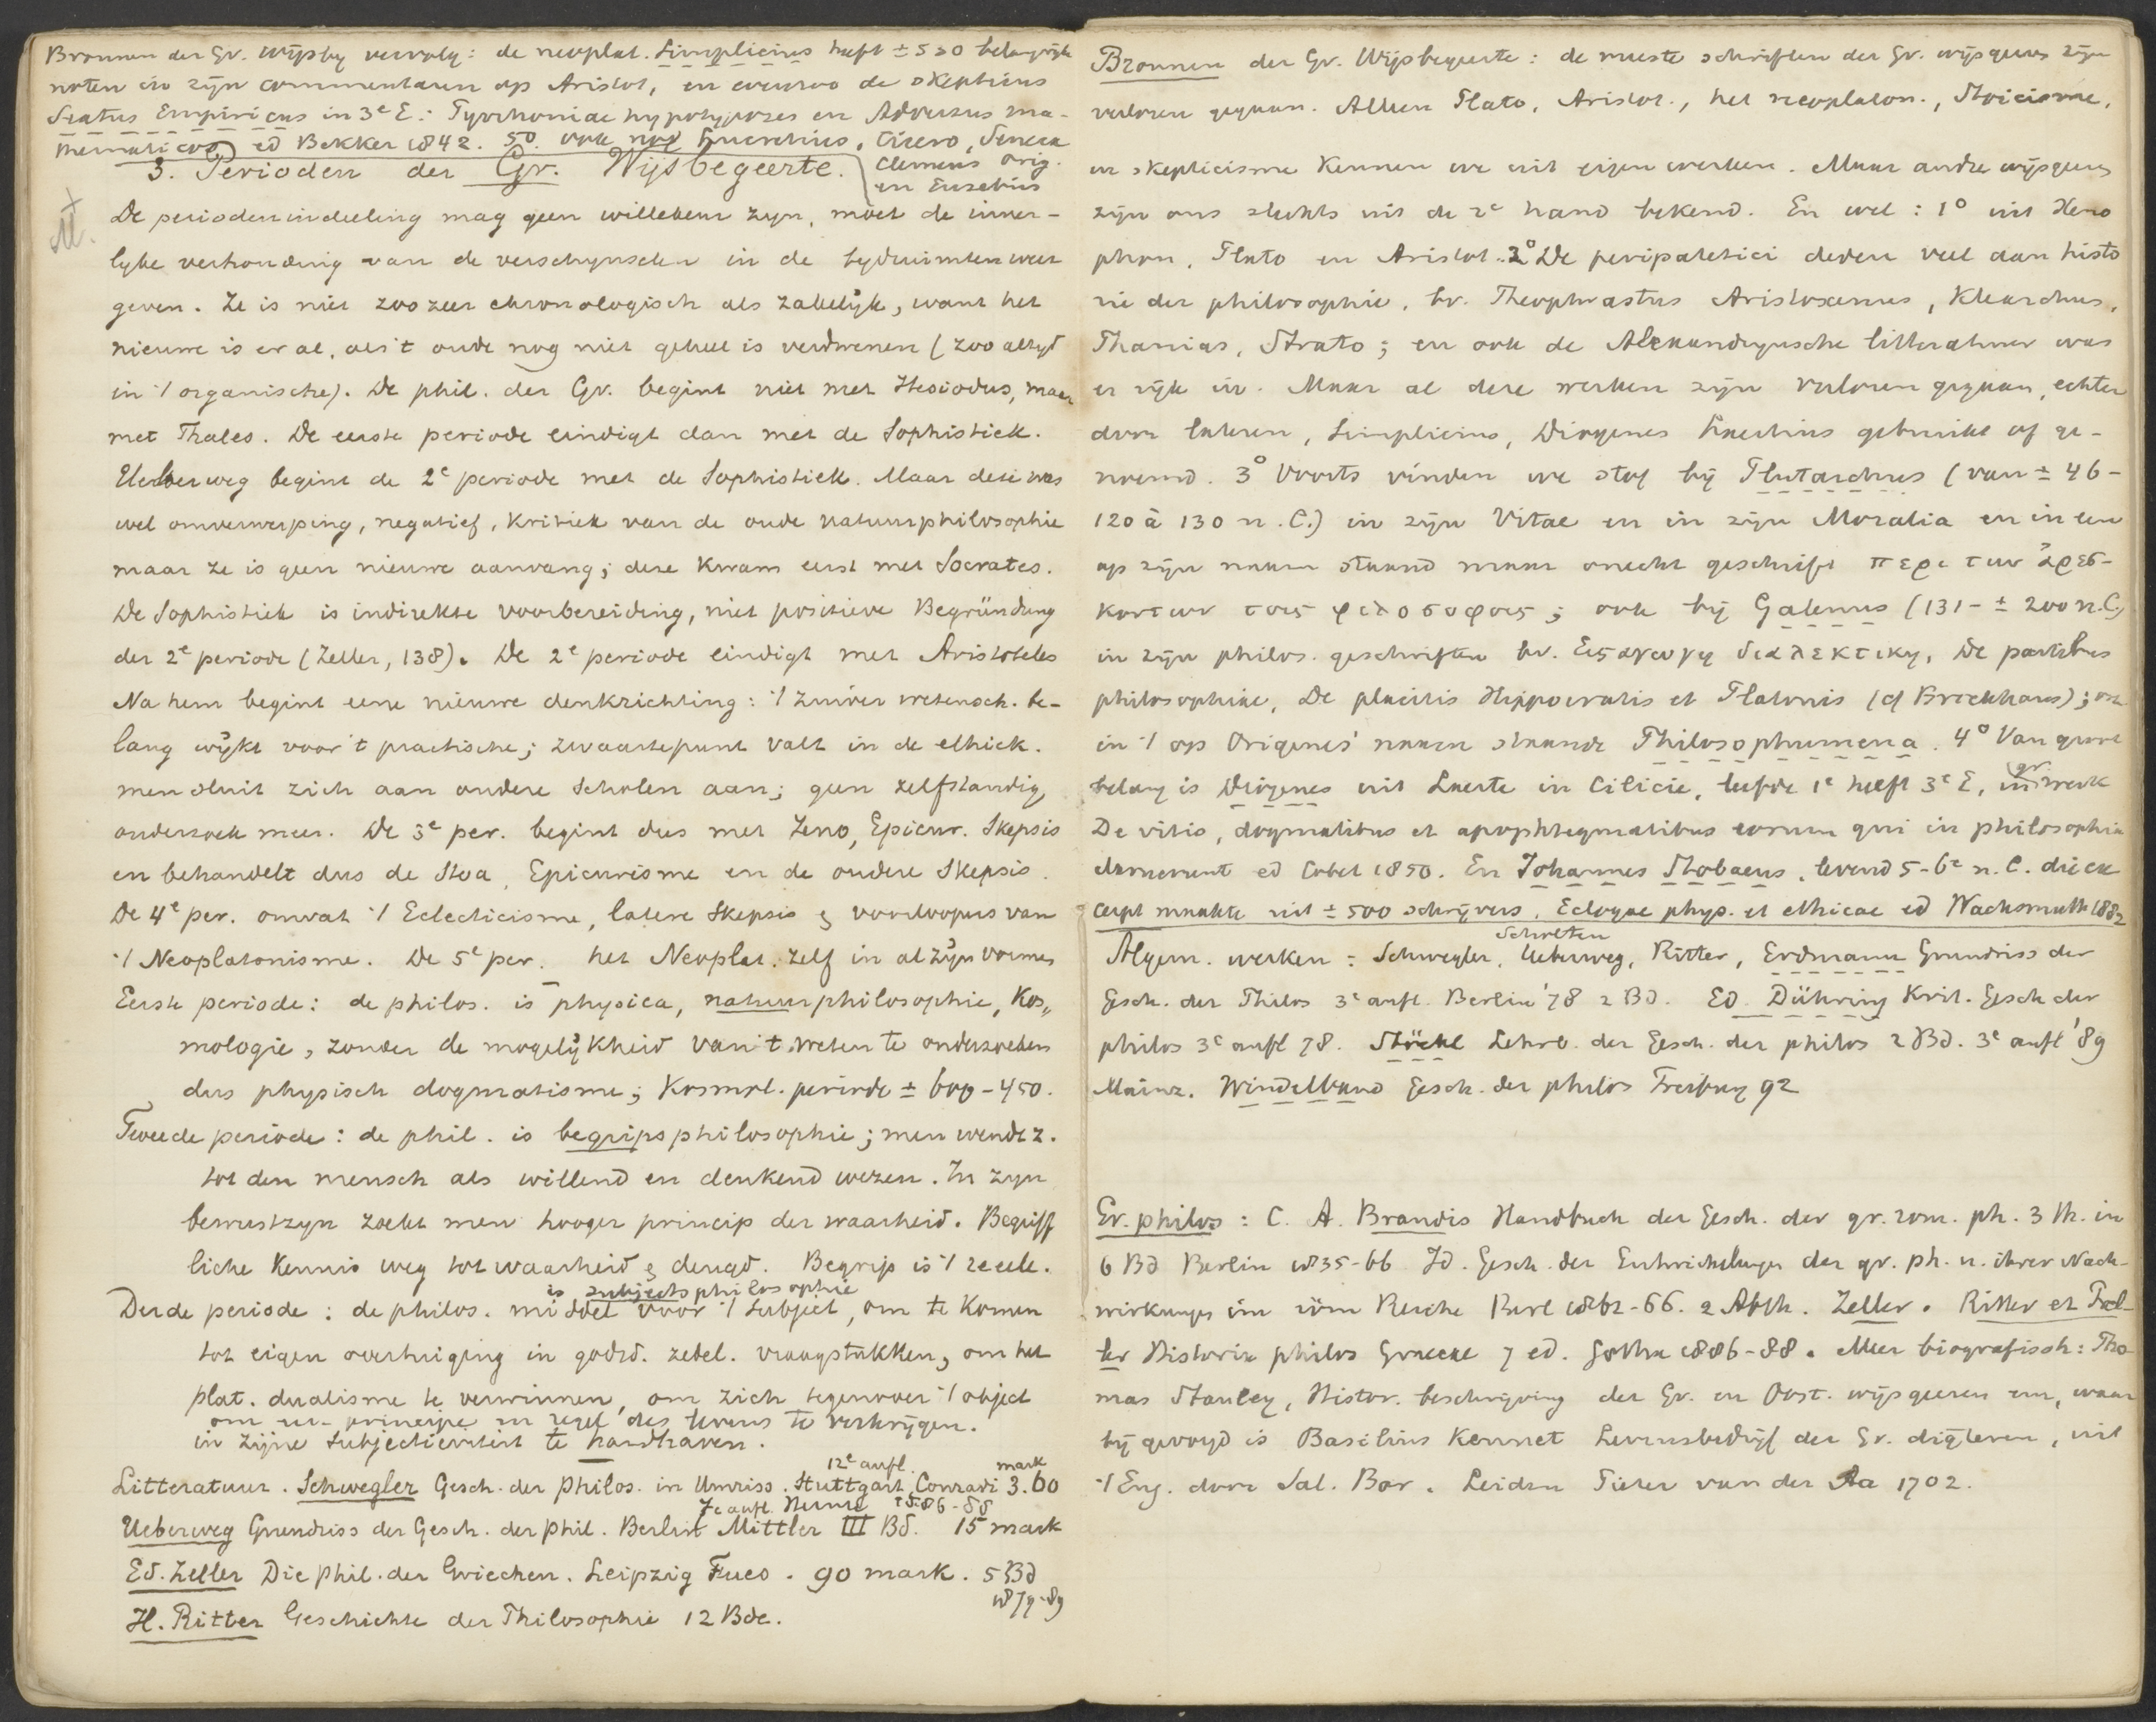 Bronnen der Gr. Wijsbeg vervolg: de neoplat. Simplicius heeft ± 530 belangrijk
noten in zijn commentaren op Aristot, en evenzoo de skeptieus
Sextus Empiricus in 3e E.: Pyrrhoniae hypotyposes en Adversus ma-
thematicos ed Bekker 1842. 50 ook nog Lucretius, Cicero, Seneca
Clemens Orig.
en Eusebius
3. Perioden der Gr. Wijsbegeerte.
De periodenindeeling mag geen willekeur zyn, moet de inner-
lyke verhouding van de verschynselen in de tydruimten weer
geven. Ze is niet zoozeer chronologisch als zakelijk, want het
nieuwe is er al, als 't oude nog niet geheel is verdwenen (zoo altyd
in 't organische). De phil. der Gr. begint niet met Hesiodus, maar
met Thales. De eerste periode eindigt dan met de Sophistiek.
Ueberweg begint de 2e periode met de Sophistiek. Maar deze was
wel omverwerping, negatief, Kritiek van de oude natuurphilosophie
maar ze is geen nieuwe aanvang; deze kwam eerst met Socrates.
De Sophistiek is indirekte voorbereiding, niet positieve Begründung
der 2e periode (Zeller, 138). De 2e periode eindigt met Aristoteles
Na hem begint eene nieuwe denkrichting: 't zuiver wetensch. be-
lang wijkt voor 't practische; zwaartepunt valt in de ethiek.
men sluit zich aan oudere Scholen aan; geen zelfstandig
onderzoek meer. De 3e per. begint dus met Zeno, Epicur. Skepsis
en behandelt dus de Stoa, Epicurisme en de oudere Skepsis.
De 4e per. omvat 't Eclecticisme, latere Skepsis & voorloopers van
't Neoplatonisme. De 5e per. het Neoplat. zelf in al zijn vormen
Eerste periode: de philos. is physica, natuurphilosophie, Kos„
mologie, zonder de mogelijkheid van 't weten te onderzoeken
dus physisch dogmatisme; Kosmol. periode ± 600-450.
Tweede periode: de phil. is begripsphilosophie; men wendt z.
tot den mensch als willend en denkend wezen. In zyn
bewustzyn zoekt men hooger princip der waarheid. Begriff
liche Kennis weg tot waarheid & deugd. Begrip is 't reeele.
is subjectsphilosophie
Derde periode: de philos. middel voor 't subject, om te komen
tot eigen overtuiging in godsd. zedel. vraagstukken, om het
plat. dualisme te verwinnen, om zich tegenover 't object
om een principe en regel des levens te verkrijgen.
in zijne subjectiviteit te handhaven.
12e aufl. mark
Litteratuur. Schwegler Gesch. der Philos. in Umriss. Stuttgart, Conradi 3.60
7e aufl. Heinze 1886-88
Ueberweg Grundriss der Gesch. der Phil. Berlin Mittler III Bd. 15 mark
Ed. Zeller Die Phil. der Griechen. Leipzig Fues. 90 mark. 5 Bd
1879-89
H. Ritter Geschichte der Philosophie 12 Bde.
Bronnen der Gr. Wijsbegeerte: de meeste schriften der Gr. wijsgeers zijn
verloren gegaan. Alleen Plato, Aristot., het neoplaton., Stoicisme,
en skepticisme kennen we uit eigen werken. Maar andre wijsgeers
zijn ons slechts uit de 2e hand bekend. En wel: 1° uit Xeno
phon, Plato en Aristot. 2° De peripatetici deden veel aan histo
rie der philosophie, bv. Theophrastus Aristoxenus, Klearchus,
Phanias, Strato; en ook de Alexandrynsche litteratuur was
er rijk in. Maar al deze werken zijn verloren gegaan, echter
door lateren, Simplicius, Diogenes Laertius gebruikt of ge-
noemd. 3° Voorts vinden we stof bij Plutarchus (van ± 46-
120 à 130 n.C.) in zijn Vitae en in zijn Moralia en in een
op zijn naam staand maar onecht geschrift περι των ἀρεσ-
κοντων τοις φιλοσοφοις; ook bij Galenus (131- ± 200 n.C.)
in zijn philos. geschriften bv. Εισαγωγη διαλεκτικη, De partibus
philosophiae, De placitis Hippocratis et Platonis (cf Brockhaus); ook
in 't op Origenes' naam staande Philosophumena. 4° Van groot
belang is Diogenes uit Laerte in Cilicie, leefde 1e helft 3e E, in gr. werk
De vitis, dogmatibus et apophtegmatibus eorum qui in philosophia
claruerunt ed Cobet 1850. En Johannes Stobaeus, levend 5-6e n.C. die ex
cerpt maakte uit ± 500 schrijvers, Eclogae phys. et ethicae ed Wachsmuth 1882
Scholten
Algem. werken: Schwegler, Ueberweg, Ritter, Erdmann Grundriss der
Gesch. der Philos 3e aufl. Berlin '78 2 Bd. Ed. Dühring Krit. Gesch der
philos 3e aufl 78. Stöckl Lehrb. der Gesch. der philos 2 Bd. 3e aufl '89
Mainz. Windelband Gesch. der philos Freiburg 92
Gr. philos: C. A. Brandis Handbuch der Gesch. der gr. rom. ph. 3 Th. in
6 Bd Berlin 1835-66 Id. Gesch. der Entwickelungen der gr. ph. u. ihrer Nach-
wirkungen im röm Reiche Berl 1862-66. 2 Abth. Zeller. Ritter et Prel-
ler Historia philos Graecae 7 ed. Gotha 1886-88. Meer biografisch: Tho-
mas Stanley, Histor. beschrijving der Gr. en Oost. wijsgeeren enz, waar
bij gevoegd is Basilius Kennet Levensbedrijf der Gr. digteren, uit
't Eng. door Sal. Bor. Leiden Pieter van der Aa 1702.